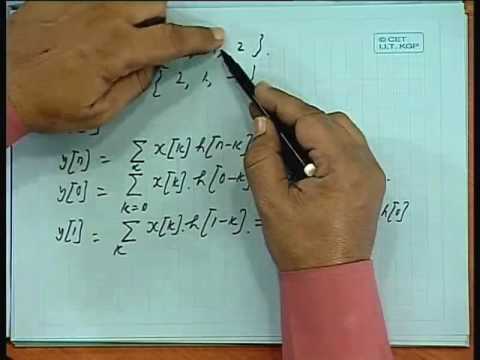 © CET
I.I.T. KGP
2 }.
{ 2, 1,
y[n] = ∑ x[k] h[n-k]
k
y[0] = ∑ x[k]. h[0-k]
k=0
y[1] = ∑ x[k]. h[1-k]. = h[0]
k